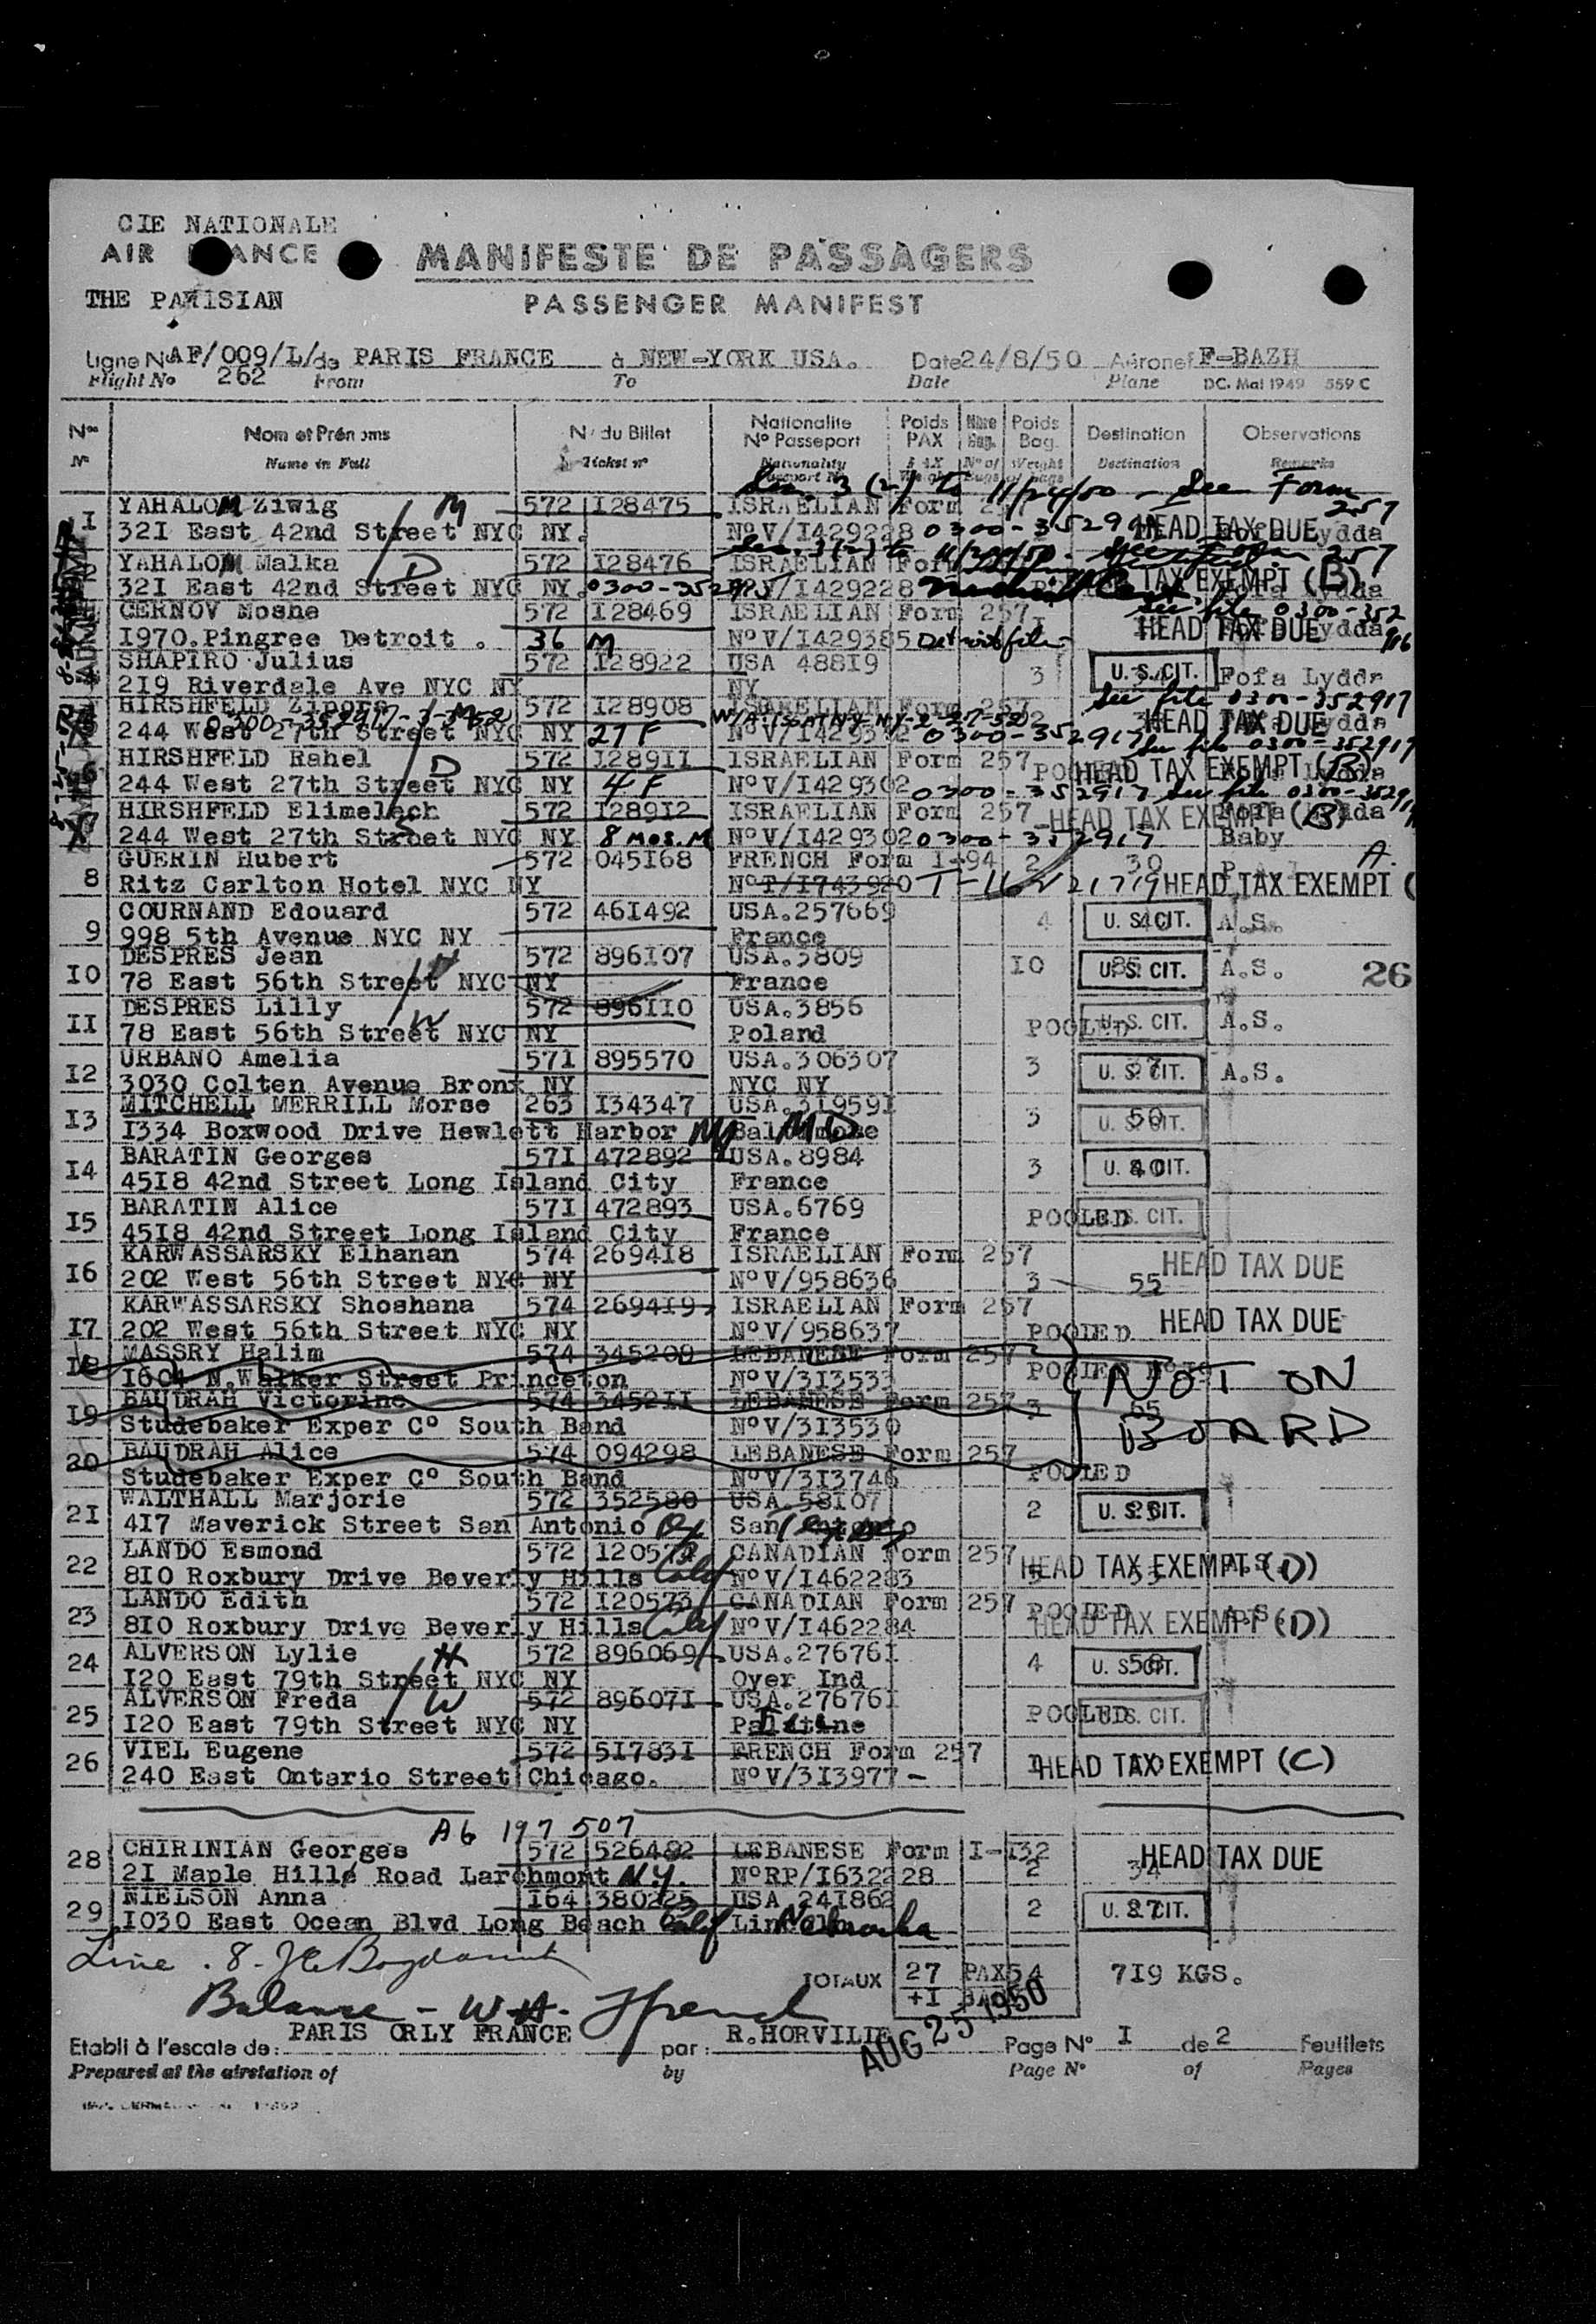 CIE NATIONALE
AIR FRANCE
MANIFESTE DE PASSAGERS
THE PARISIAN
PASSENGER MANIFEST
Ligne No AF/009/L/ de PARIS FRANCE à NEW-YORK USA. Date 24/8/50 Aéronef F-BAZH
Flight No 262 From To Date Plane DC. Mai 1949 559 C
Nos Nom et Prénoms No du Billet Nationalite No Passeport Poids PAX Nbre Bag. Poids Bag. Destination Observations
No Name in Full Ticket no Nationality Passport No PAX Weight No of Bags Weight of bags Destination Remarks
Sec. 3 (2) to 11/24/50 - See Form 257
I YAHALOM Ziwig M 572 I28475 ISRAELIAN Form 257
32I East 42nd Street NYC NY. No V/I429228 0300-3529 HEAD TAX DUE Lydda
Sec. 3 (2) to 11/24/50 - See Form 257
YAHALOM Malka D 572 I28476 ISRAELIAN Form
32I East 42nd Street NYC NY. 0300-3529 V/I429228 TAX EXEMPT (B)
See file 0300-352916
CERNOV Moshe 572 I28469 ISRAELIAN Form 257
I970.Pingree Detroit . 36 M No V/I429385 Detroit file HEAD TAX DUE Lydda
SHAPIRO Julius 572 I28922 USA 488I9 3 U. S. CIT. Fofa Lydda
2I9 Riverdale Ave NYC NY NY
See file 0300-352917
HIRSHFELD Zipora 572 I28908 ISRAELIAN Form 257 2 HEAD TAX DUE Lydda
0300-352917-3-3-52
244 West 27th Street NYC NY 27 F No V/I429302 0300-352917 See file 0300-352917
6 HIRSHFELD Rahel D 572 I289II ISRAELIAN Form 257 HEAD TAX EXEMPT (B)
244 West 27th Street NYC NY 4 F No V/I429302 0300-352917 See file 0300-352917
7 HIRSHFELD Elimelech 572 I289I2 ISRAELIAN Form 257 HEAD TAX EXEMPT (B)
244 West 27th Street NYC NY 8 mos. M No V/I429302 0300-352917 Baby
8 GUERIN Hubert 572 045I68 FRENCH Form I-94 2 30 A.
Ritz Carlton Hotel NYC NY No T/I743920 HEAD TAX EXEMPT (
9 COURNAND Edouard 572 46I492 USA.257669 4 U. S. CIT. A.S.
998 5th Avenue NYC NY France
I0 DESPRES Jean H 572 896I07 USA.3809 I0 U. S. CIT. A.S. 26
78 East 56th Street NYC NY France
II DESPRES Lilly W 572 896II0 USA.3856 POOLED U. S. CIT. A.S.
78 East 56th Street NYC NY Poland
I2 URBANO Amelia 57I 895570 USA.306307 3 U. S. CIT. A.S.
3030 Colten Avenue Bronx NY NYC NY
I3 MITCHELL MERRILL Morse 263 I34347 USA.3I959I 3 50 U. S. CIT.
I334 Boxwood Drive Hewlett Harbor NY Baltimore MD
I4 BARATIN Georges 57I 472892 USA.8984 3 40 U. S. CIT.
45I8 42nd Street Long Island City France
I5 BARATIN Alice 57I 472893 USA.6769 POOLED U. S. CIT.
45I8 42nd Street Long Island City France
I6 KARWASSARSKY Elhanan 574 2694I8 ISRAELIAN Form 257 HEAD TAX DUE
202 West 56th Street NYC NY No V/958636 3 55
I7 KARWASSARSKY Shoshana 574 2694I9 ISRAELIAN Form 257 HEAD TAX DUE
202 West 56th Street NYC NY No V/958637 POOLED
I8 MASSRY Halim 574 345209 LEBANESE Form 257 POOLED No I9
I604 N.Walker Street Princeton No V/3I3533 NOT ON
I9 BAUDRAH Victorine 574 3452II LEBANESE Form 257 3 65
Studebaker Exper Co South Band No V/3I3530 BOARD
20 BAUDRAH Alice 574 094298 LEBANESE Form 257
Studebaker Exper Co South Band No V/3I3746 POOLED
2I WALTHALL Marjorie 572 352580 USA.58I07 2 U. S. CIT.
4I7 Maverick Street San Antonio San Antonio
22 LANDO Esmond 572 I20572 CANADIAN Form 257 HEAD TAX EXEMPT (D)
8I0 Roxbury Drive Beverly Hills Calif No V/I462283
23 LANDO Edith 572 I20573 CANADIAN Form 257 POOLED A.S.
8I0 Roxbury Drive Beverly Hills Calif No V/I462284 HEAD TAX EXEMPT (D)
24 ALVERSON Lylie H 572 896069 USA.27676I 4 58 U. S. CIT.
I20 East 79th Street NYC NY Oyer Ind
25 ALVERSON Freda W 572 89607I USA.27676I POOLED U. S. CIT.
I20 East 79th Street NYC NY
26 VIEL Eugene 572 5I783I FRENCH Form 257 HEAD TAX EXEMPT (C)
240 East Ontario Street Chicago. No V/3I3977
A6 197 507
28 CHIRINIAN Georges 572 526482 LEBANESE Form I-I32 HEAD TAX DUE
2I Maple Hills Road Larchmont N.Y. No RP/I632228 2 34
29 NIELSON Anna I64 380225 USA 24I862 2 27 U. S. CIT.
I030 East Ocean Blvd Long Beach Calif Lincoln Nebraska
Line . 8 -
TOTAUX 27 PAX 54 7I9 KGS.
+I
Balance - W.H.
AUG 25 1950
Etabli à l'escale de: PARIS ORLY FRANCE par: R.HORVILLE Page No I de 2 Feuillets
Prepared at the airstation of by Page No of Pages